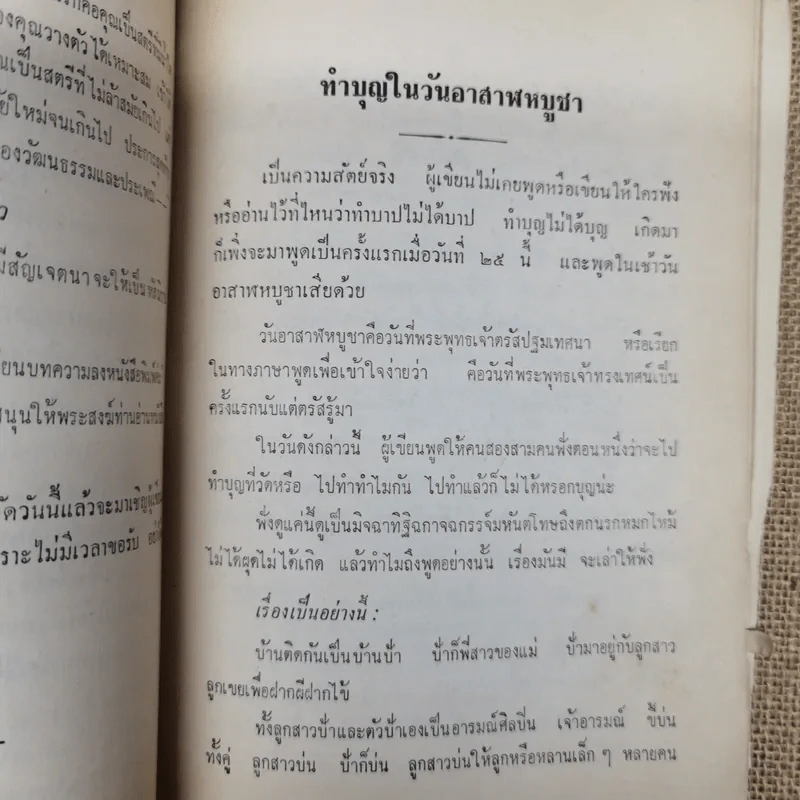 รกคือคุณเป็นสตรีที่
องคุณวางตัวได้เหมาะสม
นเป็นสตรีที่ไม่ล้าสมัยเกินไป
ยใหม่จนเกินไป
องวัฒนธรรมและประเพณี
ว
มีสัญเจตนาจะให้เป็น
ยนบทความลงหนังสือพิมพ์
สนุนให้พระสงฆ์ท่านอ่าน
ดวันนี้แล้วจะมาเชิญ
ราะไม่มีเวลาขอรับ
ทำบุญในวันอาสาฬหบูชา
เป็นความสัตย์จริง ผู้เขียนไม่เคยพูดหรือเขียนให้ใครฟัง
หรืออ่านไว้ที่ไหนว่าทำบาปไม่ได้บาป ทำบุญไม่ได้บุญ เกิดมา
ก็เพิ่งจะมาพูดเป็นครั้งแรกเมื่อวันที่ ๒๕ นี้ และพูดในเช้าวัน
อาสาฬหบูชาเสียด้วย
วันอาสาฬหบูชาคือวันที่พระพุทธเจ้าตรัสปฐมเทศนา หรือเรียก
ในทางภาษาพูดเพื่อเข้าใจง่ายว่า คือวันที่พระพุทธเจ้าทรงเทศน์เป็น
ครั้งแรกนับแต่ตรัสรู้มา
ในวันดังกล่าวนี้ ผู้เขียนพูดให้คนสองสามคนฟังตอนหนึ่งว่าจะไป
ทำบุญที่วัดหรือ ไปทำทำไมกัน ไปทำแล้วก็ไม่ได้หรอกบุญน่ะ
ฟังดูแค่นี้ดูเป็นมิจฉาทิฐิฉกาจฉกรรจ์มหันตโทษถึงตกนรกหมกไหม้
ไม่ได้ผุดไม่ได้เกิด แล้วทำไมถึงพูดอย่างนั้น เรื่องมันมี จะเล่าให้ฟัง
เรื่องเป็นอย่างนี้ :
บ้านติดกันเป็นบ้านป้า ป้าก็พี่สาวของแม่ ป้ามาอยู่กับลูกสาว
ลูกเขยเพื่อฝากผีฝากไข้
ทั้งลูกสาวป้าและตัวป้าเองเป็นอารมณ์ศิลปิน เจ้าอารมณ์ ขี้บ่น
ทั้งคู่ ลูกสาวบ่น ป้าก็บ่น ลูกสาวบ่นให้ลูกหรือหลานเล็ก ๆ หลายคน